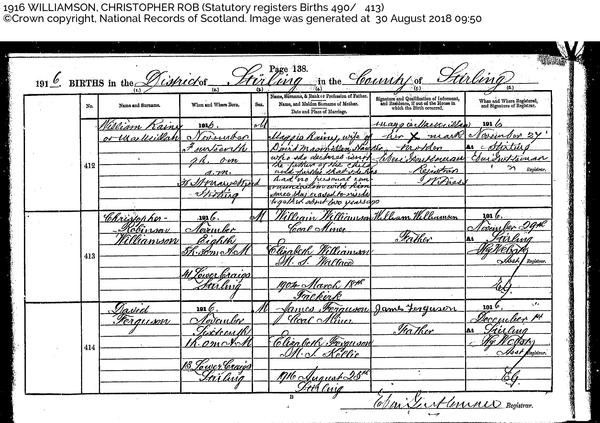 1916 WILLIAMSON, CHRISTOPHER ROB (Statutory registers Births 490/ 413)
©Crown copyright, National Records of Scotland. Image was generated at 30 August 2018 09:50
Page 138.
1916 BIRTHS in the District of Stirling in the County of Stirling
No.
Name and Surname.
When and Where Born.
Sex.
Name, Surname, & Rank or Profession of Father.
Name, and Maiden Surname of Mother.
Date and Place of Marriage.
Signature and Qualification of Informant,
and Residence, if out of the House in
which the Birth occurred.
When and Where Registered,
and Signature of Registrar.
412
William Rainey
or MacMillan
1916.
November
Fourteenth
a.m.
Stirling
M
Maggie Rainey, wife of
David Macmillan
who she declares is not
the father of the child
and further that she has
had no personal com-
munication with him
since they ceased to reside
together about two years ago
her X mark
Registrar
Witness
1916.
November 27
At Stirling
Registrar.
413
Christopher
Robinson
Williamson
1916.
November
Eighth
5h. 50m A.M.
41 Lower Craigs
Stirling
M
William Williamson
Coal Miner
Elizabeth Williamson
M.S.
1904 March 18th
Falkirk
William Williamson
Father
1916.
November 29th
At Stirling
Asst Registrar.
EG
414
David
Ferguson
1916.
November
Sixteenth
A.M.
13 Lower Craigs
Stirling
M
James Ferguson
Coal Miner
Elizabeth Ferguson
M.S.
1916 August 25th
Stirling
James Ferguson
Father
1916.
December 1st
At Stirling
Asst Registrar.
EG
Registrar.